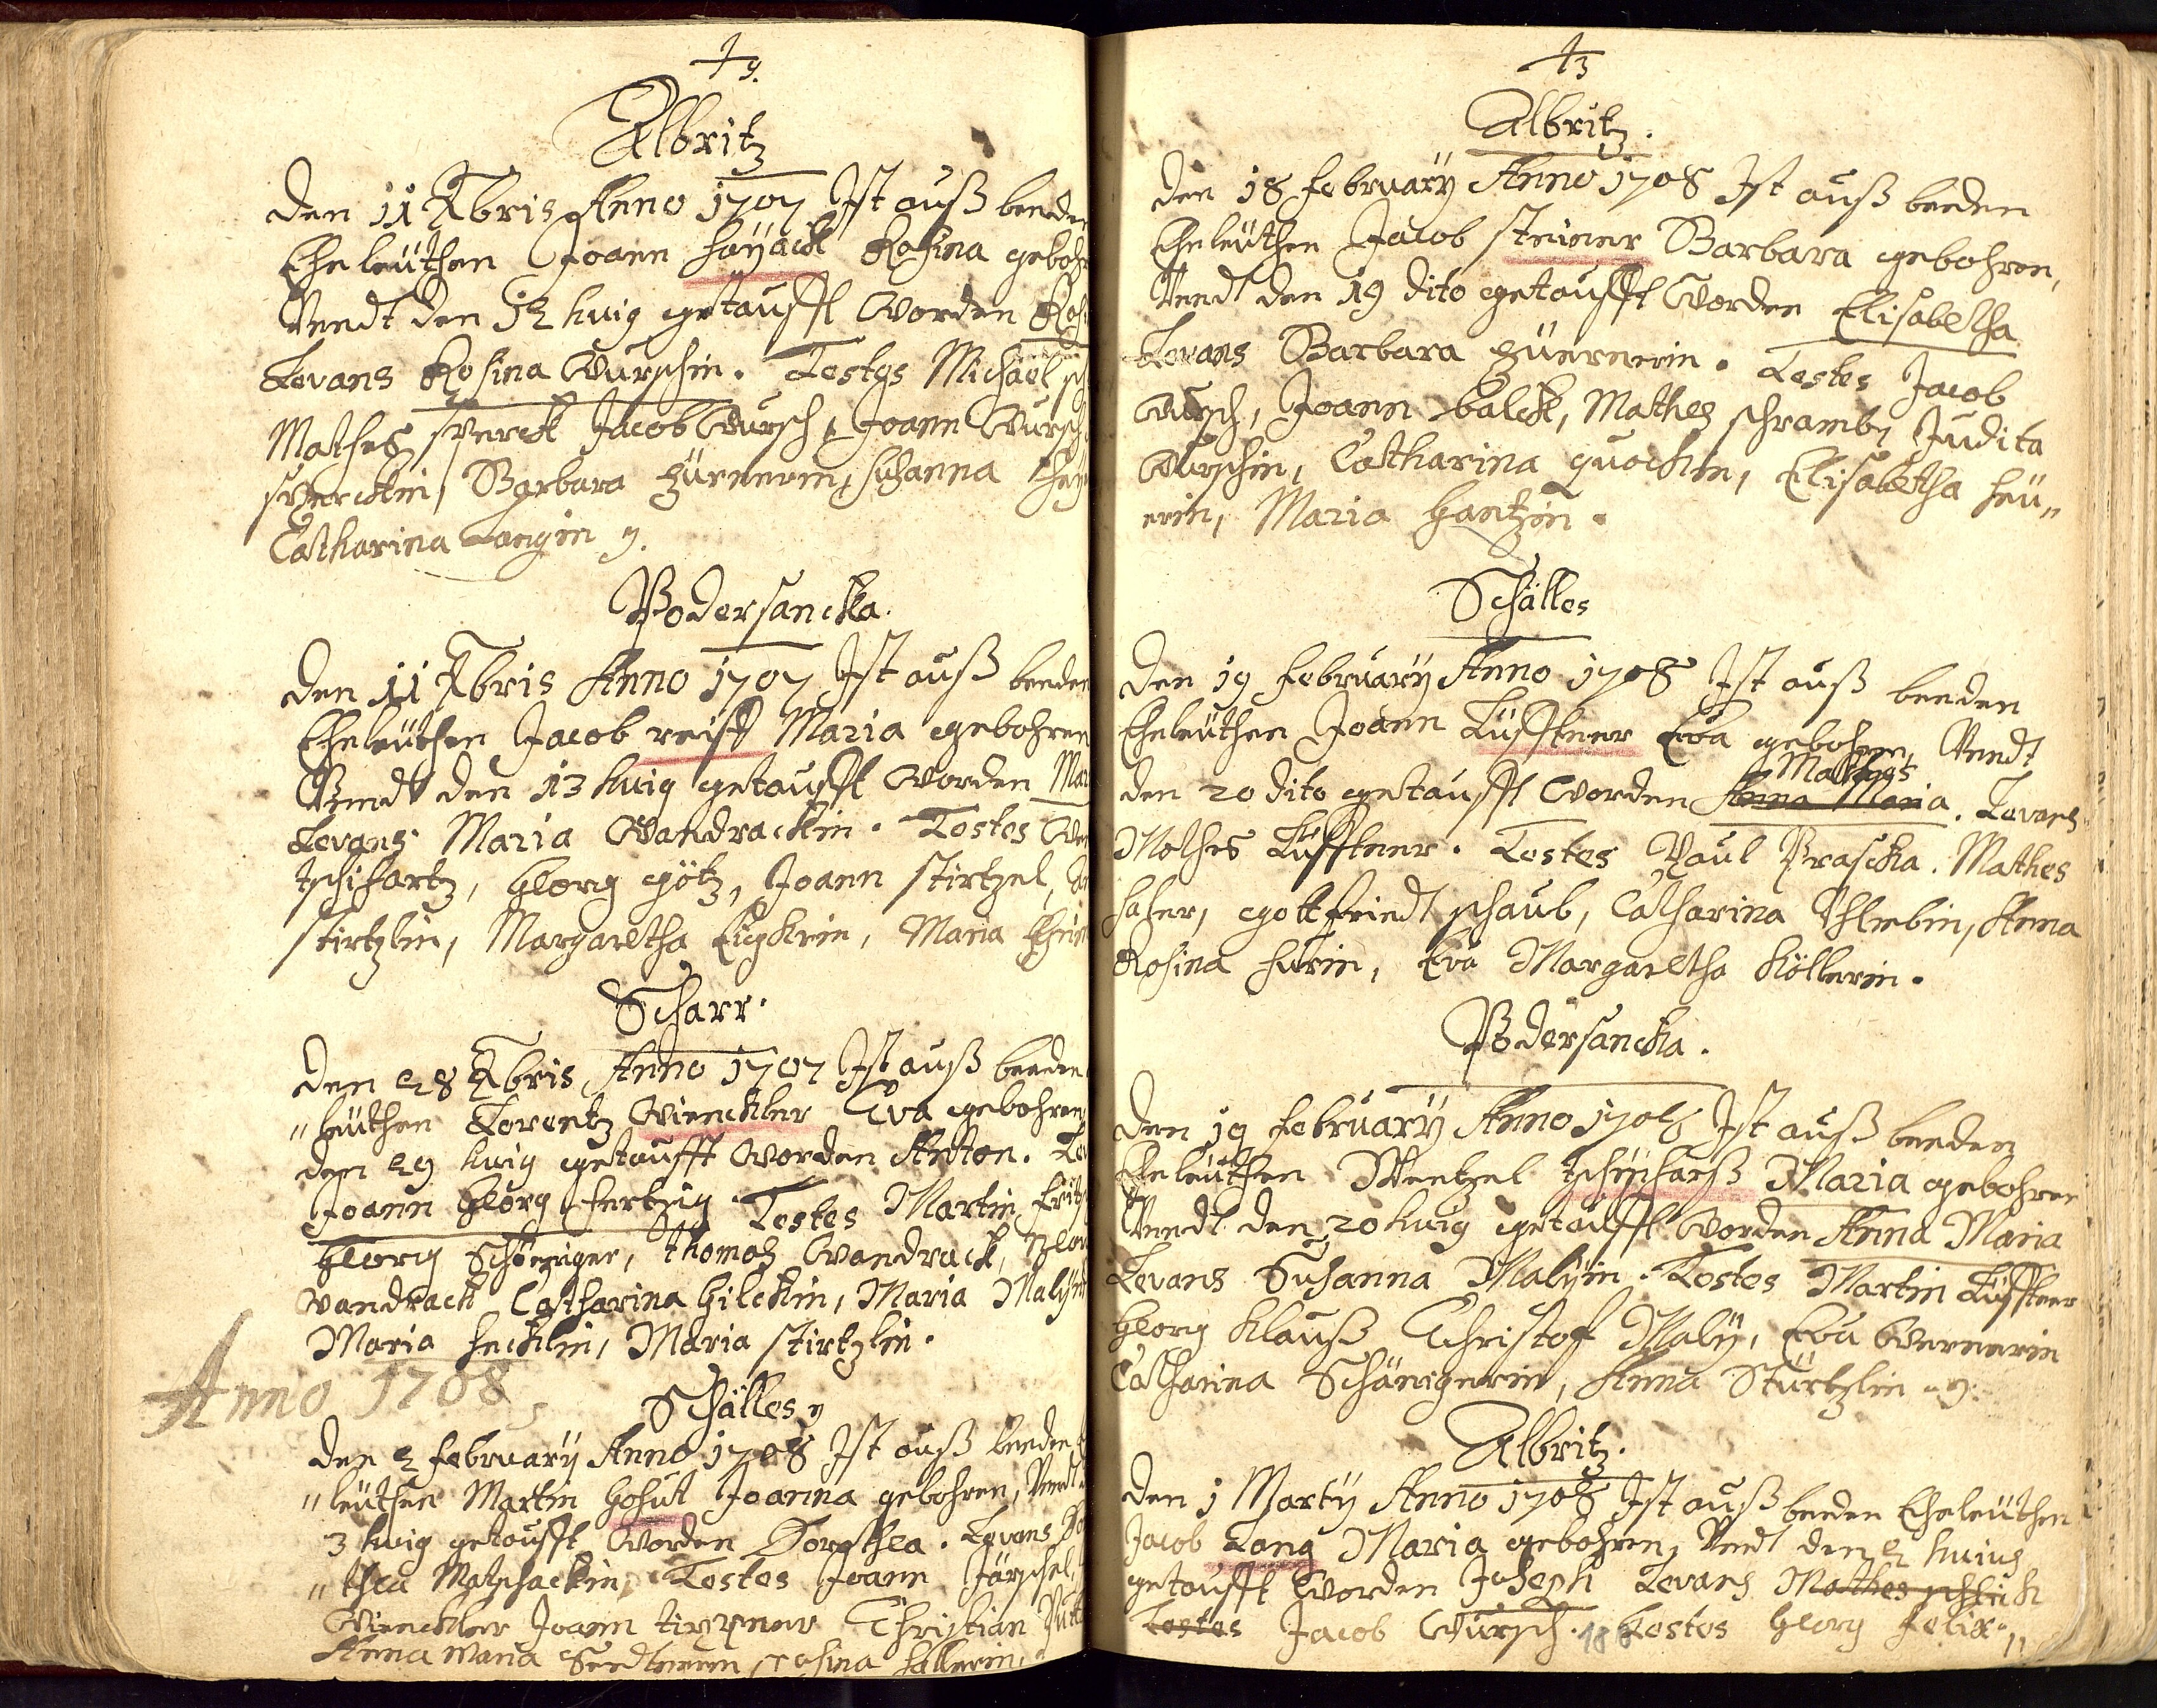 Albritz
Den 11 Xbris Anno 1707 Ist auß beeden
Eheleüthen Joann Rosina gebohr
Vendt den 12 huig getaufft worden
Levans Rosina Wurschin. Testes Michael
Mathes Jacob Wursch, Joann Wursch
Barbara Zürnerin, Susanna
Catharina Langin
Podersancka.
Den 11 Xbris Anno 1707 Ist auß beeden
Eheleüthen Jacob reiff Maria gebohren
Vendt den 13 huig getaufft worden
Levans Maria Wandrackin. Testes
tschihartz, Georg götz, Joann stirtzel,
stirtzlin, Margaretha Maria
Scharr.
Den 28 Xbris Anno 1707 Ist auß beeden
"leüthen Lorentz Winckler Eva gebohren
den 29 huig getaufft worden Anton.
Joann Georg Testes Martin
Georg Thomas Wandrack,
Wandrack Catharina Hilckin, Maria
Maria Hecklin, Maria stirtzlin.
Anno 1708
Schälles
Den 2 february Anno 1708 Ist auß beeden
"leüthen Martin Gohut Joanna gebohren, Vendt
3 huig getaufft worden Dorothea. Levans
"thea Matschackin, Testes Joann
Winckler Joann Christian
Anna Maria rosina hallerin,
Albritz.
Den 18 february Anno 1708 Ist auß beeden
Eheleüthen Jacob steiner Barbara gebohren,
Vendt den 19 dito getaufft worden Elisabetha
Levans Barbara Zürnerin. Testes Jacob
Wursch, Joann balck, Mathes schramb, Judita
Wurschin, Catharina quackin, Elisabetha heü"
erin, Maria Gantzin.
Schälles
Den 19 february Anno 1708 Ist auß beeden
Eheleüthen Joann Lüfftner Eva gebohren, Vendt
Mathes
den 20 dito getaufft worden Anna Maria. Levans
Mathes Lüfftner. Testes Paul Prascka. Mathes
haser, gottfriedt schaub, Catharina Anna
Rosina hurin, Eva Margaretha Köllerin.
Podersancka.
Den 19 february Anno 1708 Ist auß beeden
Eheleüthen Wentzel tschiharß Maria gebohren
Vendt den 20 huig getaufft worden Anna Maria
Levans Susanna Malyin. Testes Martin Lüfftner
Georg Klauß Christof Maly, Eva Wernerin
Catharina Schänigerin, Anna Stürtzlin
Albritz.
Den 1 Marty Anno 1708 Ist auß beeden Eheleüthen
Jacob Lang Maria gebohren, Vendt den 2 huius
getaufft worden Joseph Levans Mathes schlick
Testes Jacob Wursch. Testes Georg felix